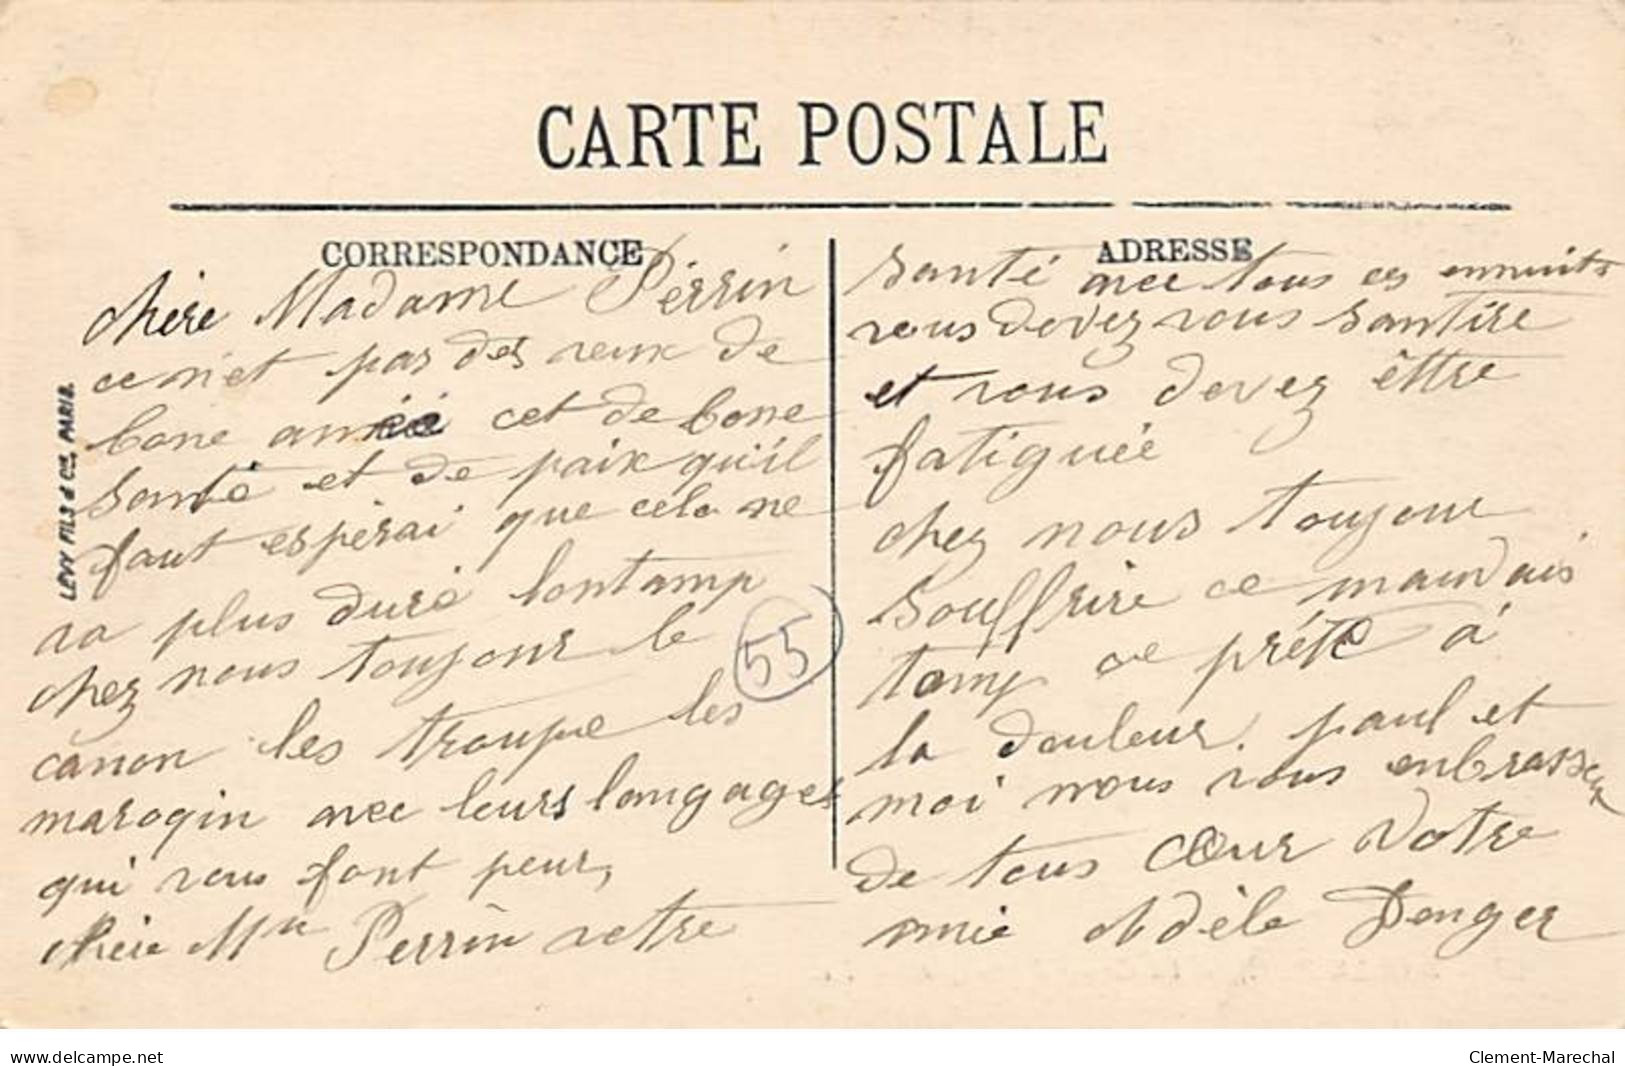 CARTE POSTALE
CORRESPONDANCE
chère Madame Pérrin
ce n'et pas des veux de
bone année cet de bone
santé et de paix qu'il
faut espèrai que cela ne
va plus duré lontamp
chez nous toujour le
canon les troupe les
maroqin avec leurs langages
qui vous font peur,
chère Mm Perrin votre
ADRESSE
santé avec tous ces ennuits
vous devez vous santire
et vous devez êttre
fatiguée
chez nous toujour
souffrire ce mauvais
tamp ce préte à
la douleur. paul et
moi nous vous enbrassen
de tous Cœur Votre
amie Adèle Denger
55
LEVY FILS & Cie, PARIS.
www.delcampe.net
Clement-Marechal